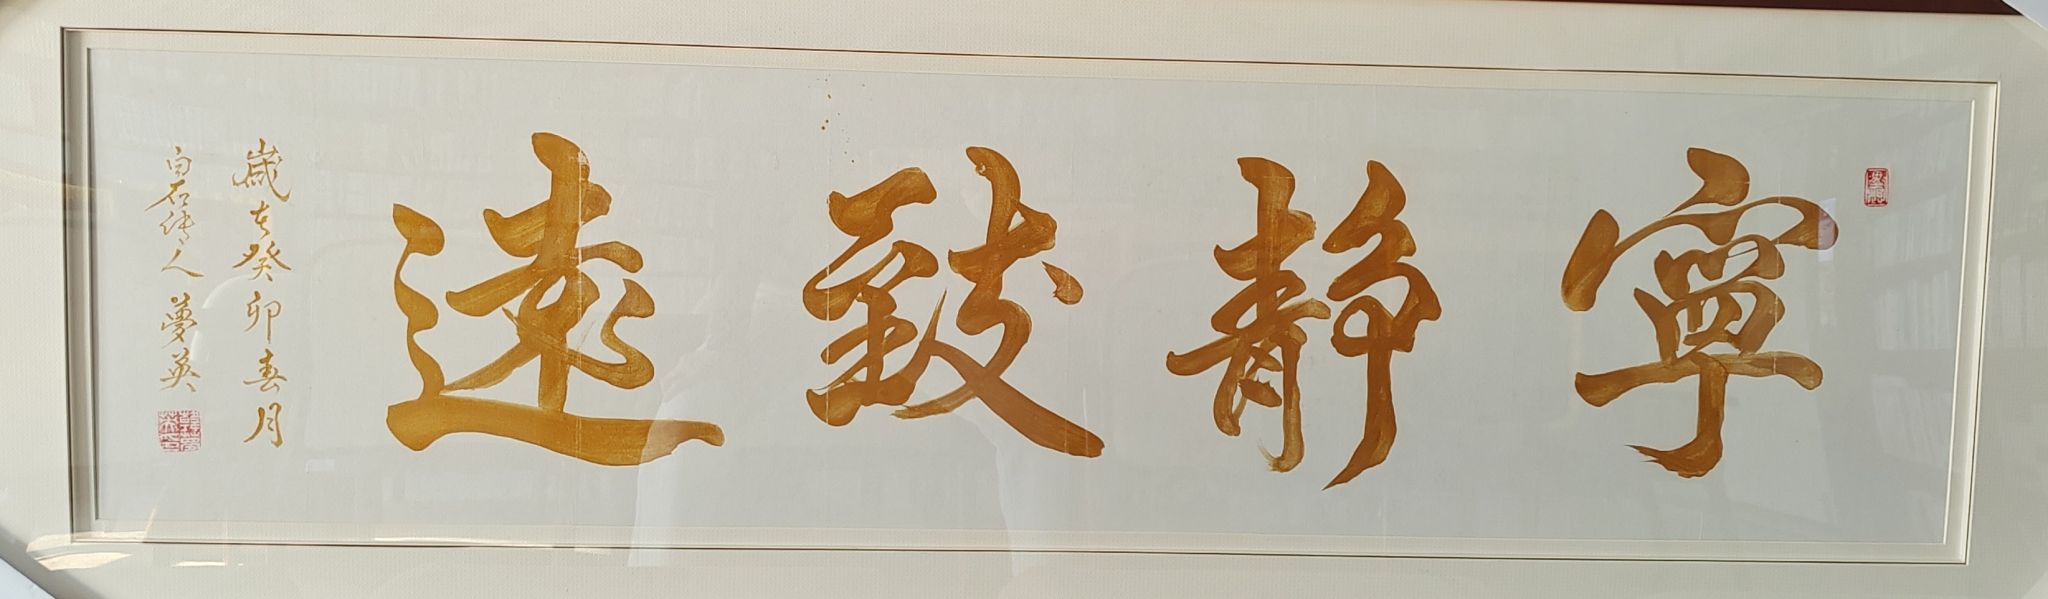 寧靜致遠
歲在癸卯春月
白石传人夢英